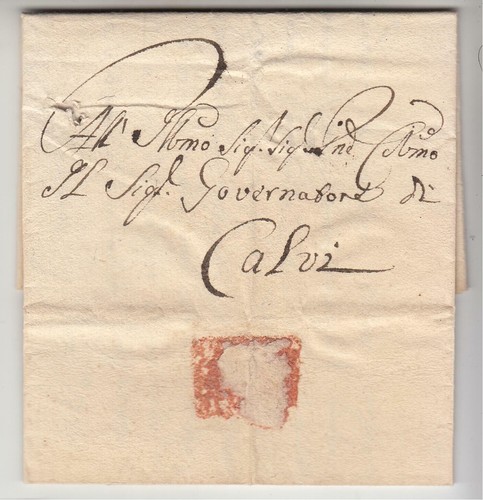 All' Illmo Sigr. Sigr. Pne Colmo
Il Sigr. Governatore di
Calvi